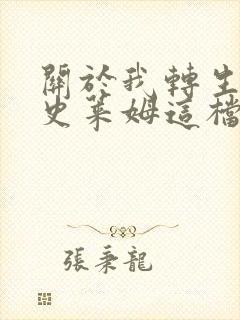 關於我轉生
史萊姆這檔
張秉龍